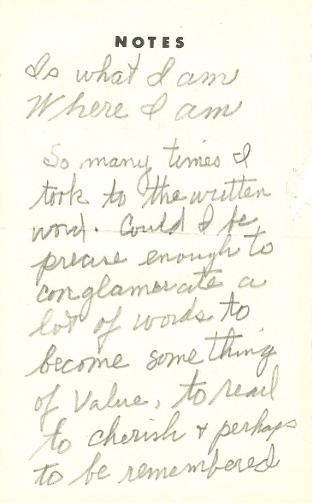 NOTES
Is what I am
Where I am
So many times I
took to the written
word. Could I be
precise enough to
conglamerate a
lot of words to
become some thing
of value, to read
to cherish & perhaps
to be remembered